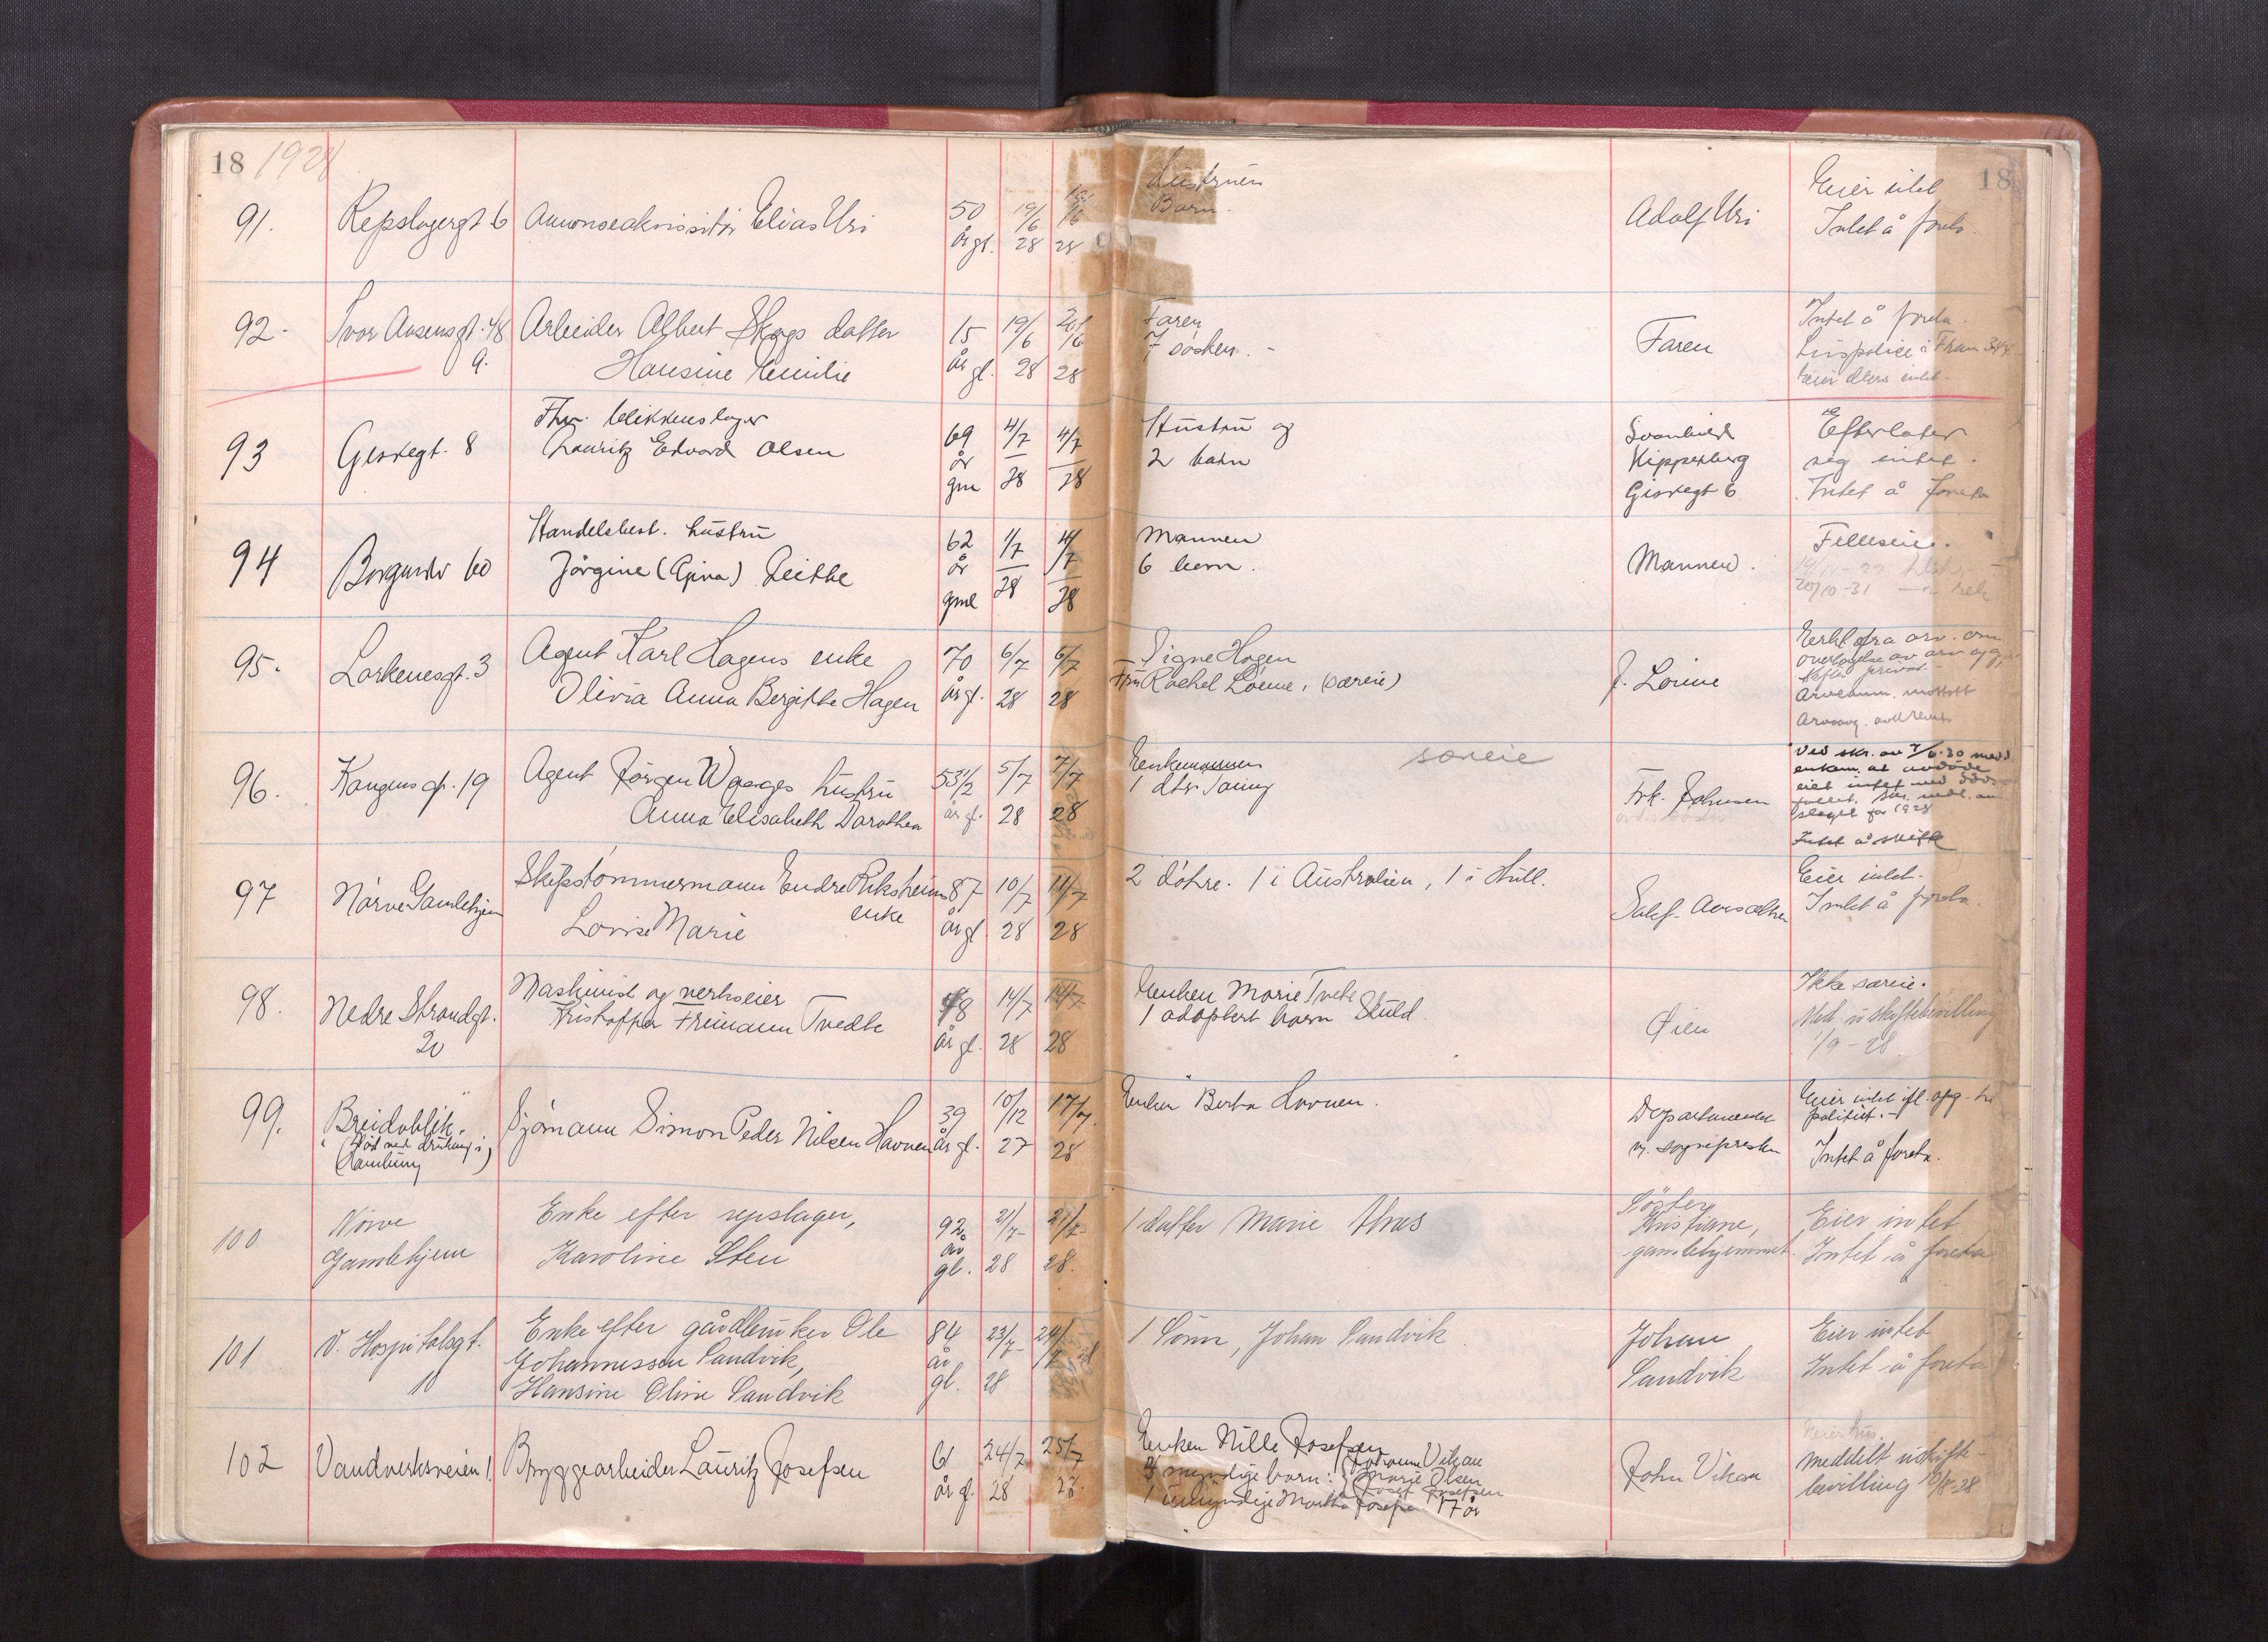 18 1928
18
91. Repslagergt 6 Annonseakvisitör Elias Uri 50 år gl. 19/6 28 19/6 28 Hustruen Adolf Uri Eier intet
Barn. Intet å foreta.
92. Ivar Aasensgt. 48 Arbeider Albert Skogs datter 15 år gl. 19/6 28 20/6 28 Faren Faren Intet å foreta.
9. Hansine Emilie 7 søsken. - Livspolice i Fram 344.
Eier ellers intet.
93 Giskegt. 8 Fhv. blikkenslager 69 år gm 4/7 28 4/7 28 Hustru og Svanhild Efterlater
Lauritz Edvard Olsen 2 barn Kipperberg seg intet.
Giskegt 6 Intet å foreta
94 Borgundv 60 Handelsbest. hustru 62 år gml 1/7 28 4/7 28 Mannen Mannen. Felleseie.
Jörgine (Gina) Leithe 6 barn. 20/10-31
95. Larkenesgt. 3 Agent Karl Hagens enke 70 år gl. 6/7 28 6/7 28 Signe Hagen J. Loüne Erkl. fra arv. om
Olivia Anna Bergitte Hagen Fru Rachel Loüne, (særeie) overtagelse av arv og gj.
Skifter privat. -
Arveanm. mottatt
Arveavg.
96. Kongens gt. 19 Agent Jörgen Waages hustru 53 1/2 år gl. 5/7 28 7/7 28 Enkemannen særeie Frk. Johnsen Ved skr. av 7/6.30 medd.
Anna Elisabeth Dorothea 1 dtr Fanny enkem. at avdöde
eiet intet ved döds-
fallet.
for 1928
Intet å skifte
97 Nörve Gamlehjem Skipstömmermann Endre Riksheims 87 år gl. 10/7 28 11/7 28 2 döttre. 1 i Australien, 1 i Hull. Eier intet.
enke
Lovise Marie Intet å foreta.
98. Nedre Strandgt. 20 Maskinist og verkseier 48 år gl. 14/7 28 14/7 28 Enken Marie Tvete Øien Ikke særeie.
Kristoffer Freimann Tvedte 1 adoptert barn Skuld. Med. uskiftebevilling
1/9-28.
99. Breidablik. Sjömann Simon Peder Nilsen Havnen 39 år gl. 10/12 27 17/7. 28 Enken Berta Havnen. Departementet Eier intet ifl. opg. til
(Död ved drukning i Hamburg) v. sognepresten politiet. -
Intet å foreta.
100 Nörve Gamlehjem Enke efter repslager, 92 år gl. 21/7- 28 21/7- 28. 1 datter Marie Aas Söster Eier intet
Karoline Sten Kristiane, Intet å foreta
gamlehjemmet.
101 V. Hospitalsgt. 10 Enke efter gårdbruker Ole 84 år gl. 23/7- 28 24/7 28 1 Sönn, Johan Sandvik. Johan Eier intet
Johannessen Sandvik, Sandvik Intet å foreta
Hansine Oline Sandvik
102 Vandverksveien 1. Bryggearbeider Lauritz Josefsen 61 år gl. 24/7 28 25/7 28. Enken Nille Josefsen John Vikan Eier hus.
4 myndige barn: Johanne Vikan meddelt uskifte-
Marie Olsen bevilling 10/8-28
Josef Josefsen
1 umyndige Martha Josefsen 17 år